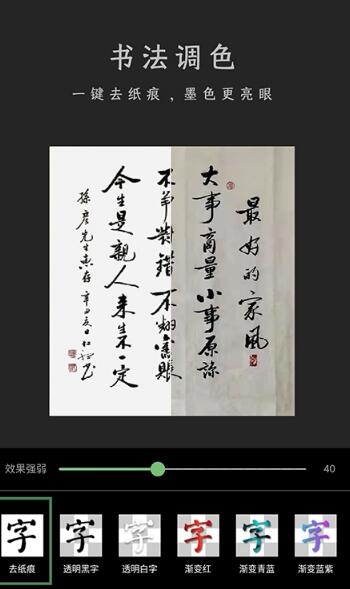 书法调色
一键去纸痕，墨色更亮眼
最好的家风
大事商量小事原谅
不争对错不翻旧账
今生是亲人来生不一定
孙彦先生惠存辛丑夏日
效果强弱
40
字
字
字
字
字
字
去纸痕
透明黑字
透明白字
渐变红
渐变青蓝
渐变蓝紫